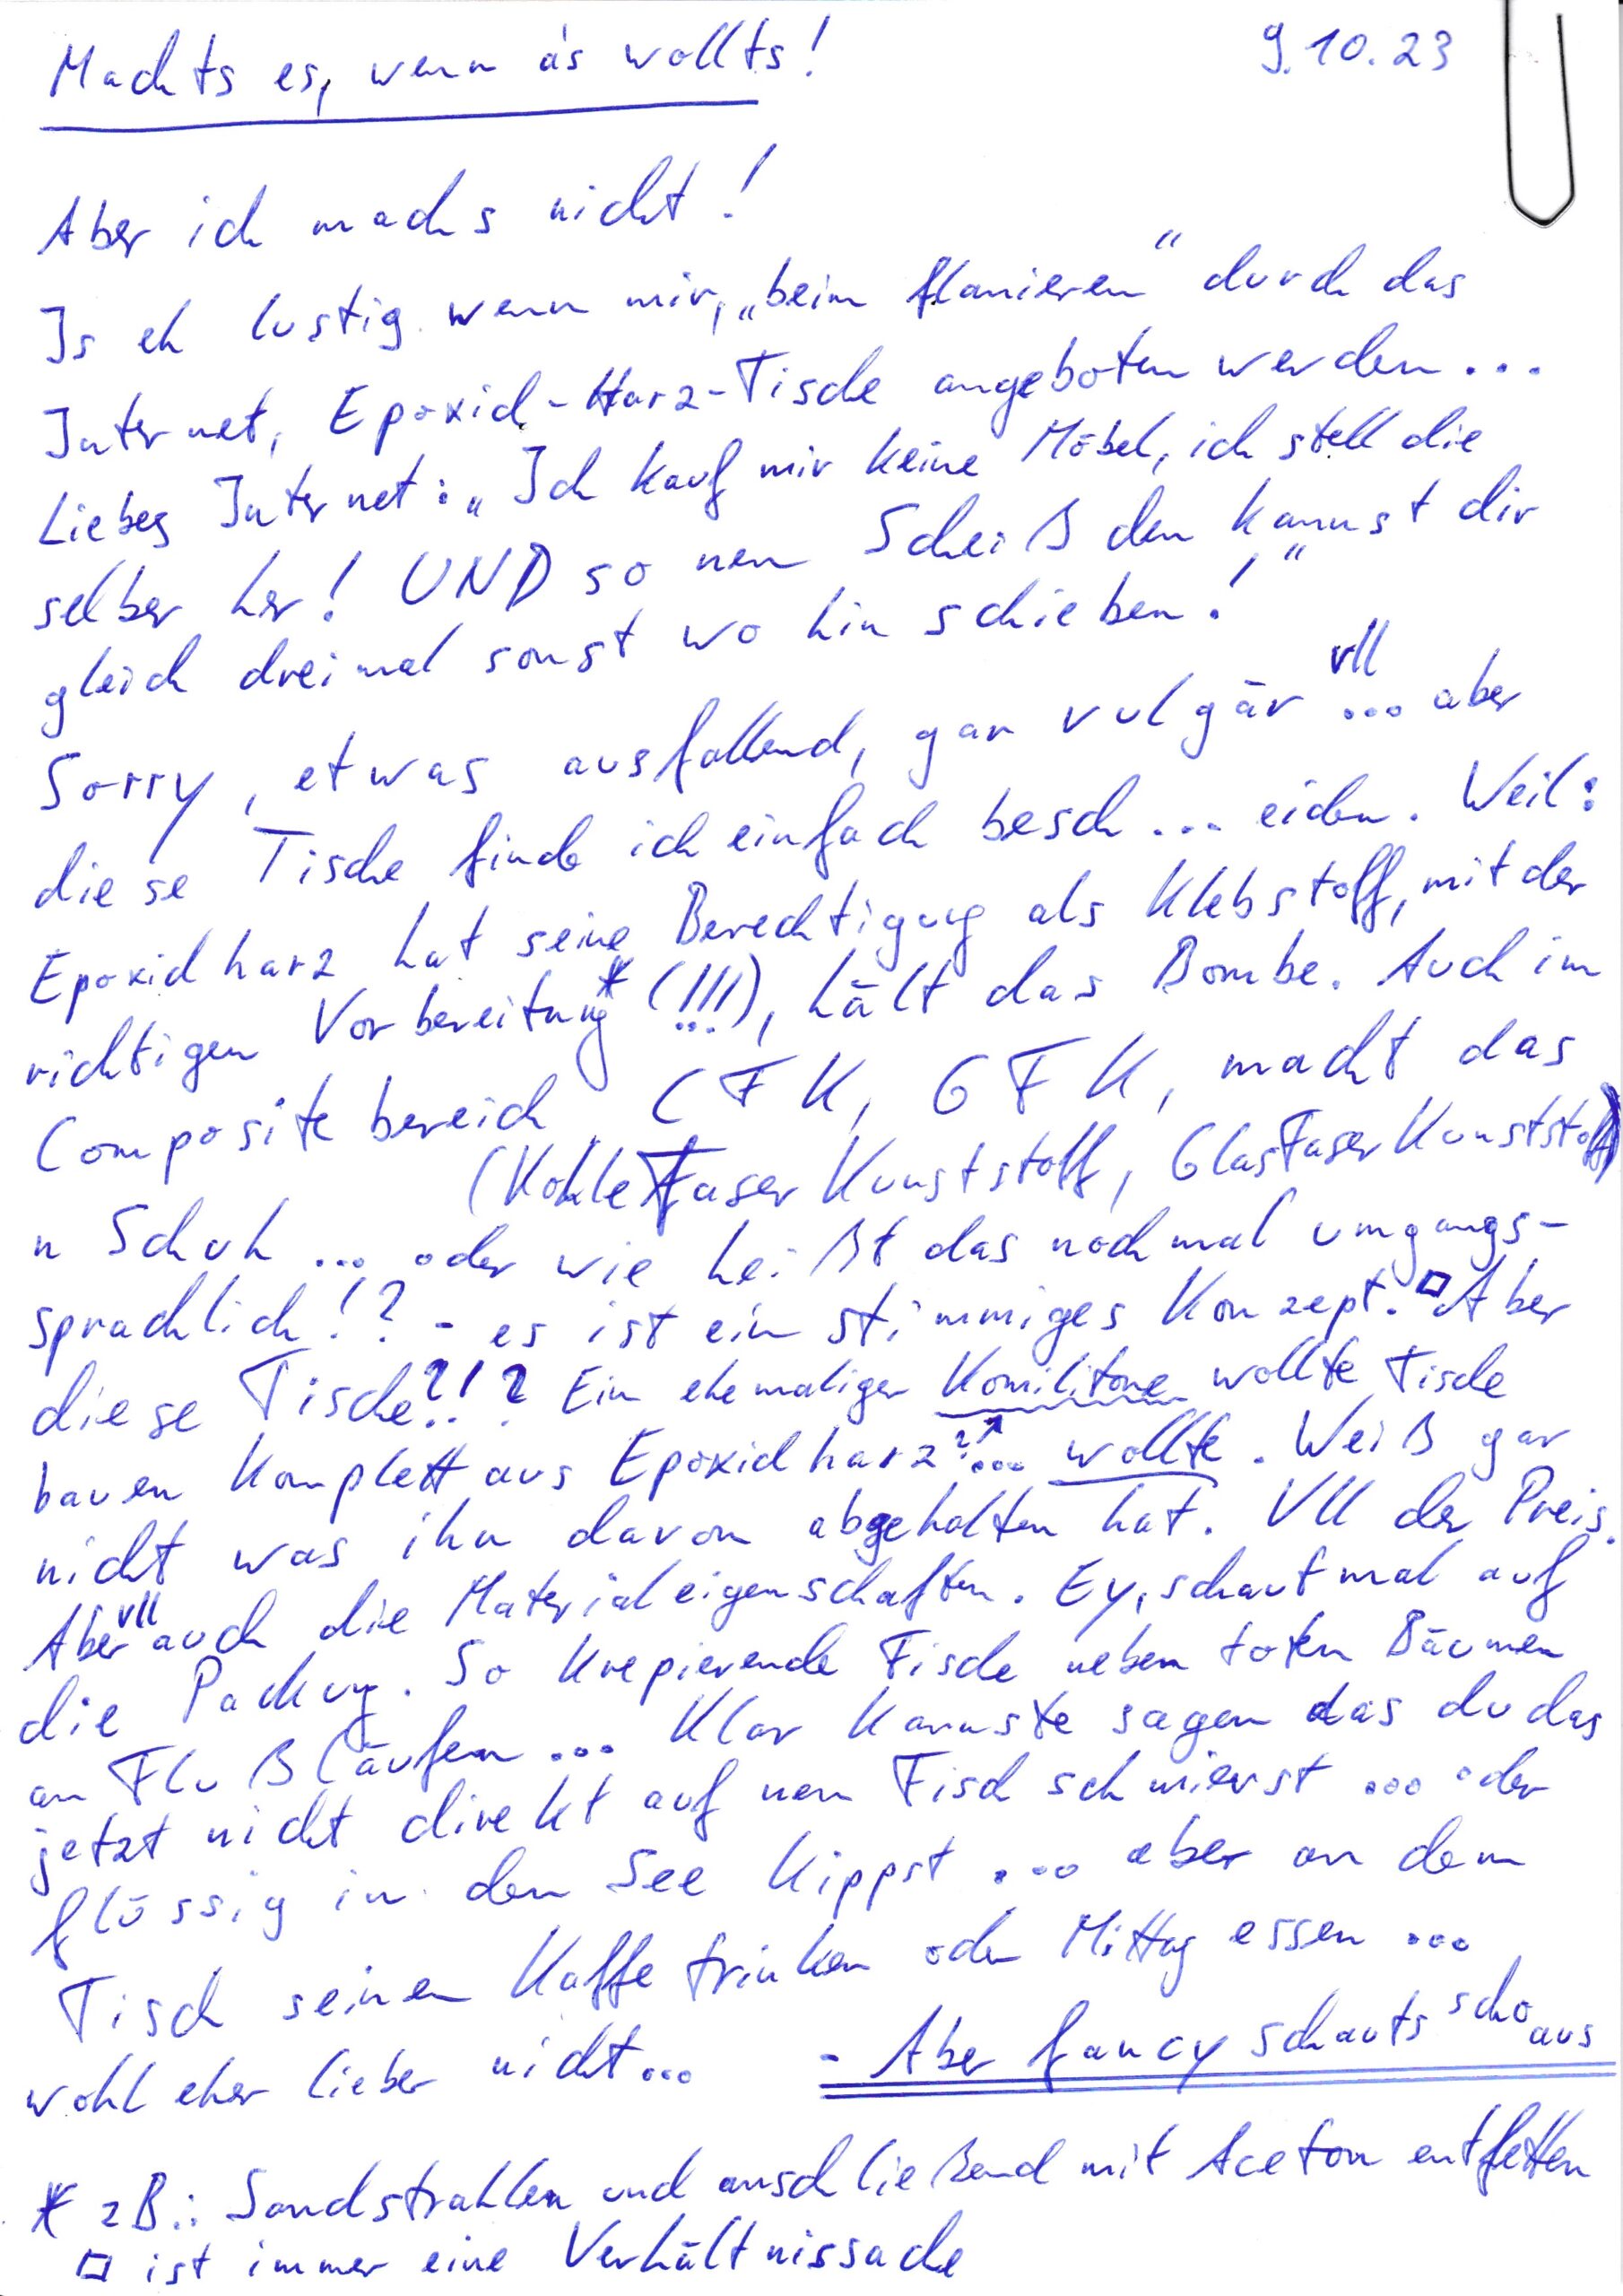 Machts es, wenn a's wollts!
9.10.23
Aber ich machs nicht!
Is eh lustig wenn mir, „beim flanieren" durch das
Internet, Epoxid-Harz-Tische angeboten werden...
Liebes Internet: „Ich kauf mir keine Möbel, ich stell die
selber her! UND so nen Scheiß den kannst dir
gleich dreimal sonst wo hin schieben!"
Sorry, etwas ausfallend, gar vulgär vll ... aber
diese Tische finde ich einfach besch... eiden. Weil:
Epoxidharz hat seine Berechtigung als Klebstoff, mit der
richtigen Vorbereitung* (!!!), hält das Bombe. Auch im
Compositebereich, CFK, GFK, macht das
(KohleFaserKunststoff, GlasFaserKunststoff)
n Schuh ... oder wie heißt das nochmal umgangs-
sprachlich!? - es ist ein stimmiges Konzept.□ Aber
diese Tische?!? Ein ehemaliger Komilitone wollte Tische
bauen Komplett aus Epoxidharz ?↗ ... wollte. Weiß gar
nicht was ihn davon abgehalten hat. Vll der Preis.
Aber vll auch die Materialeigenschaften. Ey, schaut mal auf
die Packung. So krepierende Fische neben toten Bäumen
an Flußläufen ... Klar kannste sagen das du das
jetzt nicht direkt auf nen Fisch schmierst ... oder
flüssig in den See kippst ... aber an dem
Tisch seinen Kaffe trinken oder Mittag essen ...
wohl eher lieber nicht...
- Aber fancy schauts scho aus
* zB.: Sandstrahlen und anschließend mit Aceton entfetten
□ ist immer eine Verhältnissache